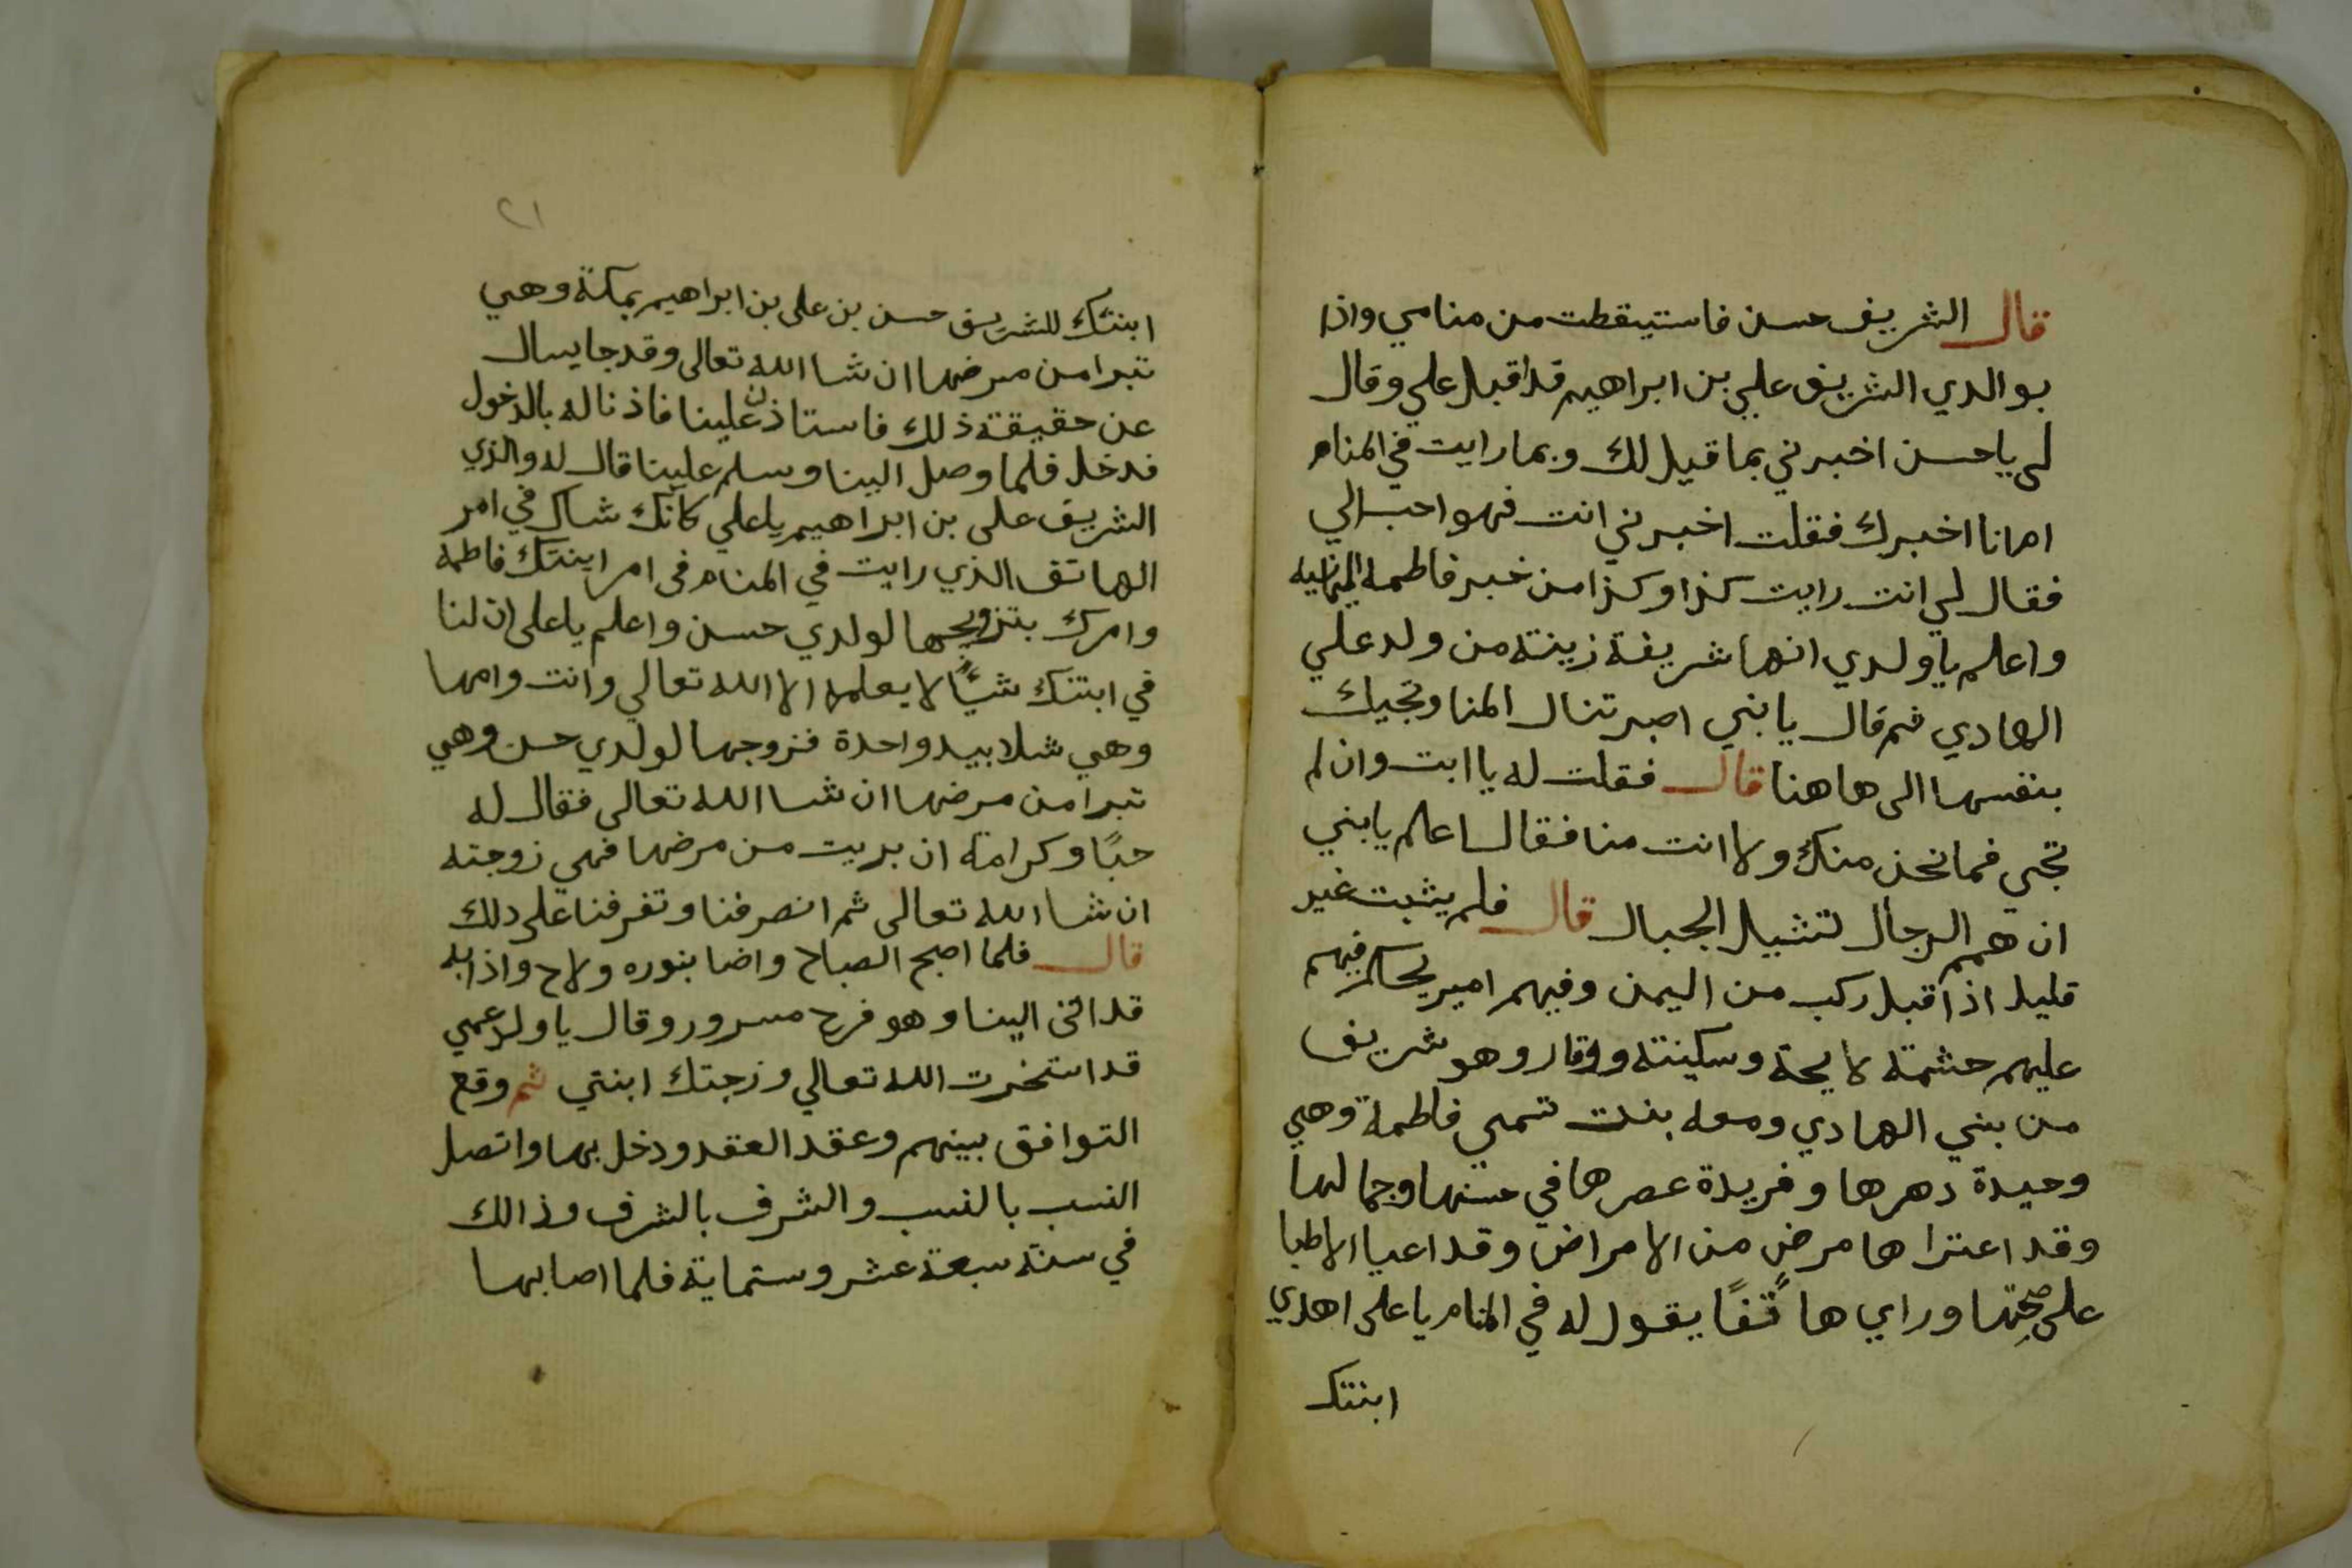 قال الشريف حسن فاستيقظت من منامي واذا
بوالدي الشريف علي بن ابراهيم قد اقبل علي وقال
لي ياحسن اخبرني بما قيل لك وبما رايت في المنام
ام انا اخبرك فقلت اخبرني انت فهو احب الي
فقال لي انت رايت كذا وكذا من خبر فاطمة اليمانيه
واعلم يا ولدي انها شريفة زينة من ولد علي
الهادي ثم قال يا بني اصبر تنال المنا وتجيك
بنفسها الى هاهنا قال فقلت له يا ابت وان لم
تجي فما نحن منك ولا انت منا فقال اعلم يا بني
ان همم الرجال لتشيل الجبال قال فلم يثبت غير
قليل اذ اقبل ركب من اليمن وفيهم امير يحكم فيهم
عليهم حشمة لايحة وسكينة ووقار وهو شريف
من بني الهادي ومعه بنت تسمى فاطمة وهي
وحيدة دهرها وفريدة عصرها في حسنها وجمالها
وقد اعتراها مرض من الامراض وقد اعيا الاطبا
على صحتها وراي هاتفًا يقول له في المنام يا على اهدي
ابنتك
٢١
ابنتك للشريف حسن بن على بن ابراهيم بمكة وهي
تبرا من مرضها ان شا الله تعالى وقد جا يسال
عن حقيقة ذلك فاستاذن علينا فاذنا له بالدخول
فدخل فلما وصل الينا وسلم علينا قال له والدي
الشريف على بن ابراهيم يا علي كانك شاك في امر
الهاتف الذي رايت في المنام فى امر ابنتك فاطمة
وامرك بتزويجها لولدي حسن واعلم يا على ان لنا
في ابنتك شيًا لا يعلمه الا الله تعالي وانت وامها
وهي شلا بيد واحدة فزوجها لولدي حسن وهي
تبرا من مرضها ان شا الله تعالى فقال له
حبًا وكرامة ان بريت من مرضها فهي زوجته
ان شا الله تعالى ثم انصرفنا وتفرفنا على دلك
قال فلما اصبح الصباح واضا بنوره ولاح واذا به
قد اتى الينا وهو فرح مسرور وقال يا ولد عمي
قد استخرت الله تعالي وزجتك ابنتي ثم وقع
التوافق بينهم وعقد العقد ودخل بها واتصل
النسب بالنسب والشرف بالشرف وذالك
في سنة سبعة عشر وستماية فلما اصابها